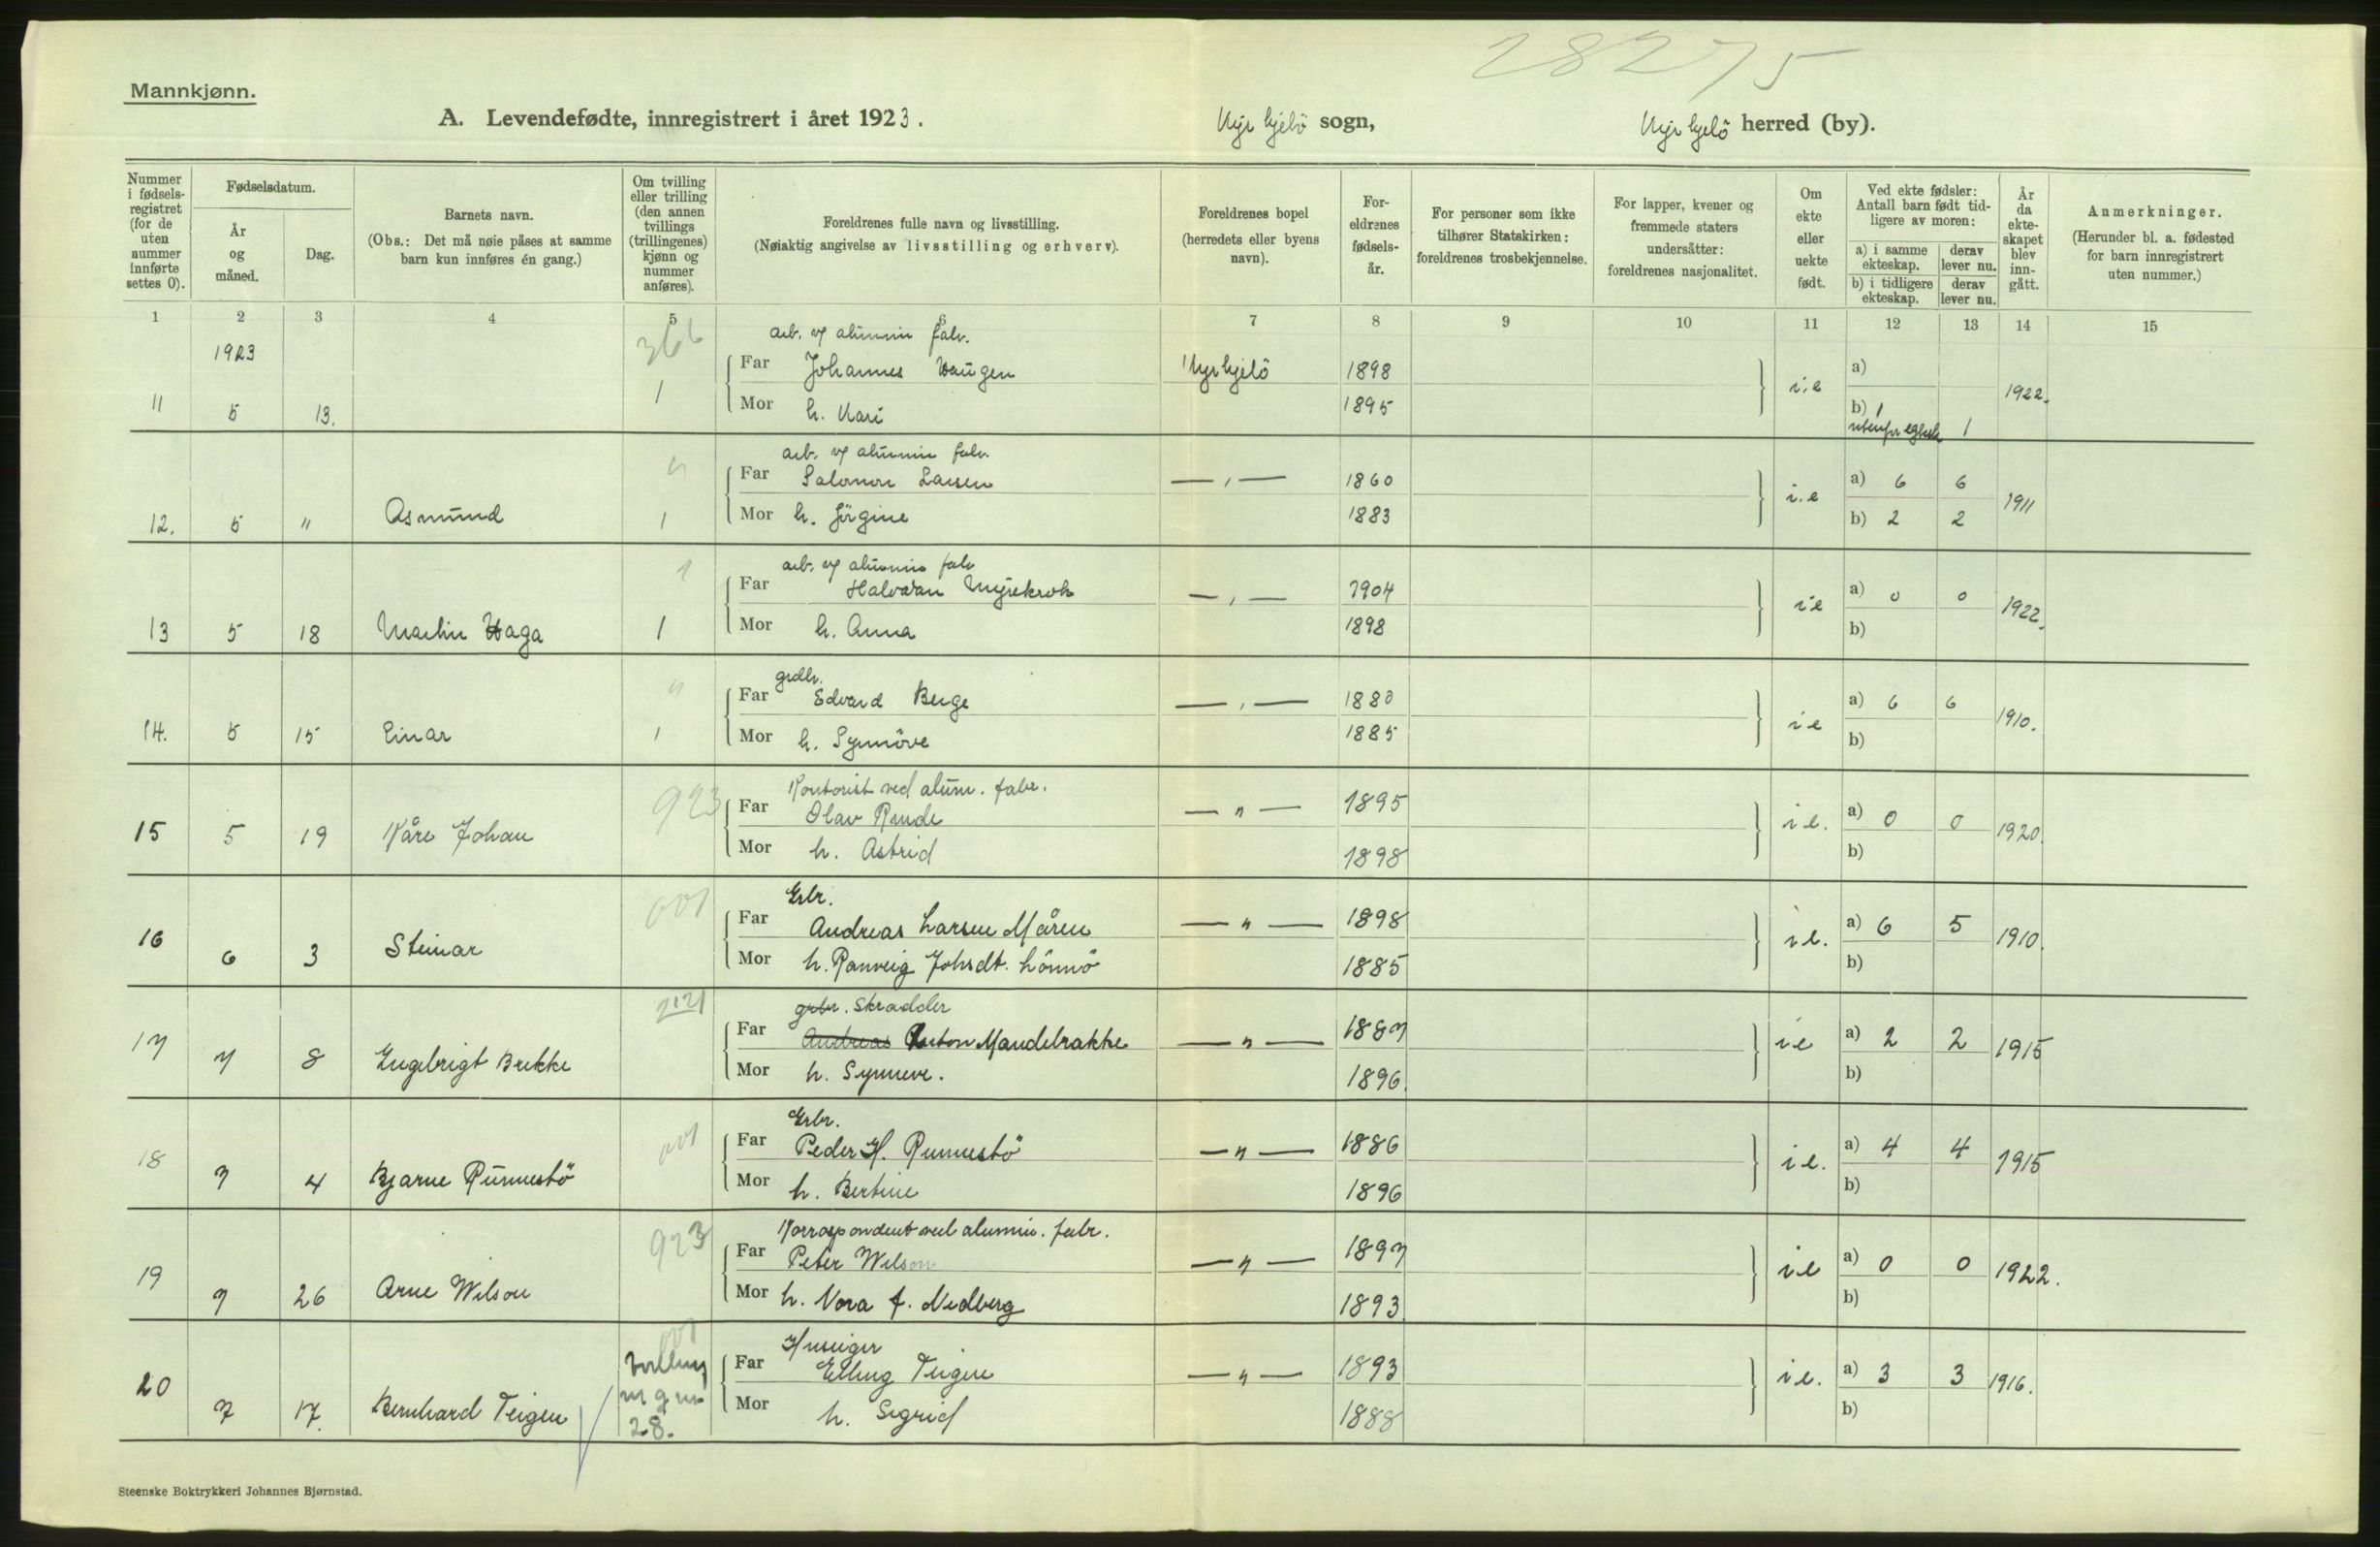 28275
Mannkjønn.
A. Levendefødte, innregistrert i året 1923. Kyrkjebö sogn, Kyrkjebö herred (by).
Nummer i fødselsregistret (for de uten nummer innførte settes 0).
Fødselsdatum.
År og måned.
Dag.
Barnets navn.
(Obs.: Det må nøie påses at samme barn kun innføres én gang.)
Om tvilling eller trilling (den annen tvillings (trillingenes) kjønn og nummer anføres).
Foreldrenes fulle navn og livsstilling.
(Nøiaktig angivelse av livsstilling og erhverv).
Foreldrenes bopel (herredets eller byens navn).
Foreldrenes fødselsår.
For personer som ikke tilhører Statskirken: foreldrenes trosbekjennelse.
For lapper, kvener og fremmede staters undersåtter: foreldrenes nasjonalitet.
Om ekte eller uekte født.
Ved ekte fødsler: Antall barn født tidligere av moren:
a) i samme ekteskap. derav lever nu.
b) i tidligere ekteskap. derav lever nu.
År da ekteskapet blev inngått.
Anmerkninger.
(Herunder bl. a. fødested for barn innregistrert uten nummer.)
1 2 3 4 5 6 7 8 9 10 11 12 13 14 15
1923 366 arb. v/ alumin fabr.
Far Johannes Haugen Kyrkjebö 1898 i.e a) 1922.
11 5 13. 1 Mor h. Kari 1895 b) 1 utenfor 1
" arb. v/ alumin fabr.
Far Salomon Larsen — , — 1860 i.e a) 6 6 1911
12. 5 " Asmund 1 Mor h. Jörgine 1883 b) 2 2
" arb. v/ alumin fabr
Far Halvdan Myrekrok — , — 1904 i e a) 0 0 1922.
13 5 18 Martin Haga 1 Mor h. Anna 1898 b)
" grdbr.
Far Edvard Berge — , — 1880 i e a) 6 6 1910.
14. 5 15 Einar 1 Mor h. Synnöve 1885 b)
923 Kontorist ved alum. fabr.
Far Olav Runde — " — 1895 i e. a) 0 0 1920.
15 5 19 Kåre Johan Mor h. Astrid 1898 b)
001 Grbr.
Far Andreas Larsen Måren — " — 1898 i e. a) 6 5 1910.
16 6 3 Steinar Mor h. Ranveig Johsdt. Lönnö 1885 b)
2121 grbr. Skradder
Far Andreas Anton Mandelrakke — " — 1887 i e a) 2 2 1915
17 7 8 Engebrigt Brekke Mor h. Synneve. 1896. b)
001 Grbr.
Far Peder H. Runnestö — " — 1886 i e. a) 4 4 1915
18 7 4 Bjarne Runnestö Mor h. Bertine 1896 b)
923 Korrespondent ved alumin. fabr.
Far Peter Wilson — " — 1897 i e a) 0 0 1922.
19 7 26 Arne Wilson Mor h. Nora f. Nedberg 1893 b)
001 Huseiger
tvilling Far Elling Teigen — " — 1893 i e. a) 3 3 1916.
20 7 17. Bernhard Teigen 28. Mor h. Sigrid 1888 b)
Steenske Boktrykkeri Johannes Bjørnstad.